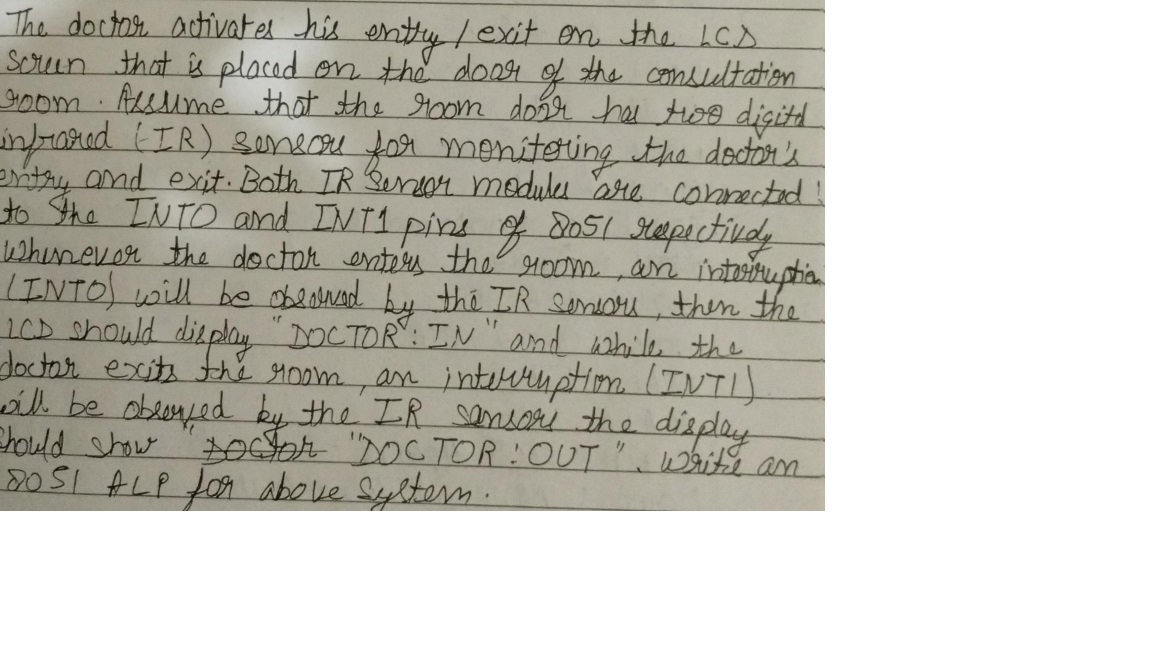 The doctor activates his entry / exit on the LCD
Screen that is placed on the door of the consultation
room. Assume that the room door has two digital
infrared (IR) sensors for monitoring the doctor's
entry and exit. Both IR Sensor modules are connected
to the INT0 and INT1 pins of 8051 respectively
Whenever the doctor enters the room, an interruption
(INT0) will be observed by the IR sensors, then the
LCD should display "DOCTOR : IN" and while the
doctor exits the room, an interruption (INT1)
will be observed by the IR sensors the display
should show "Doctor "DOCTOR : OUT". Write an
8051 ALP for above system.